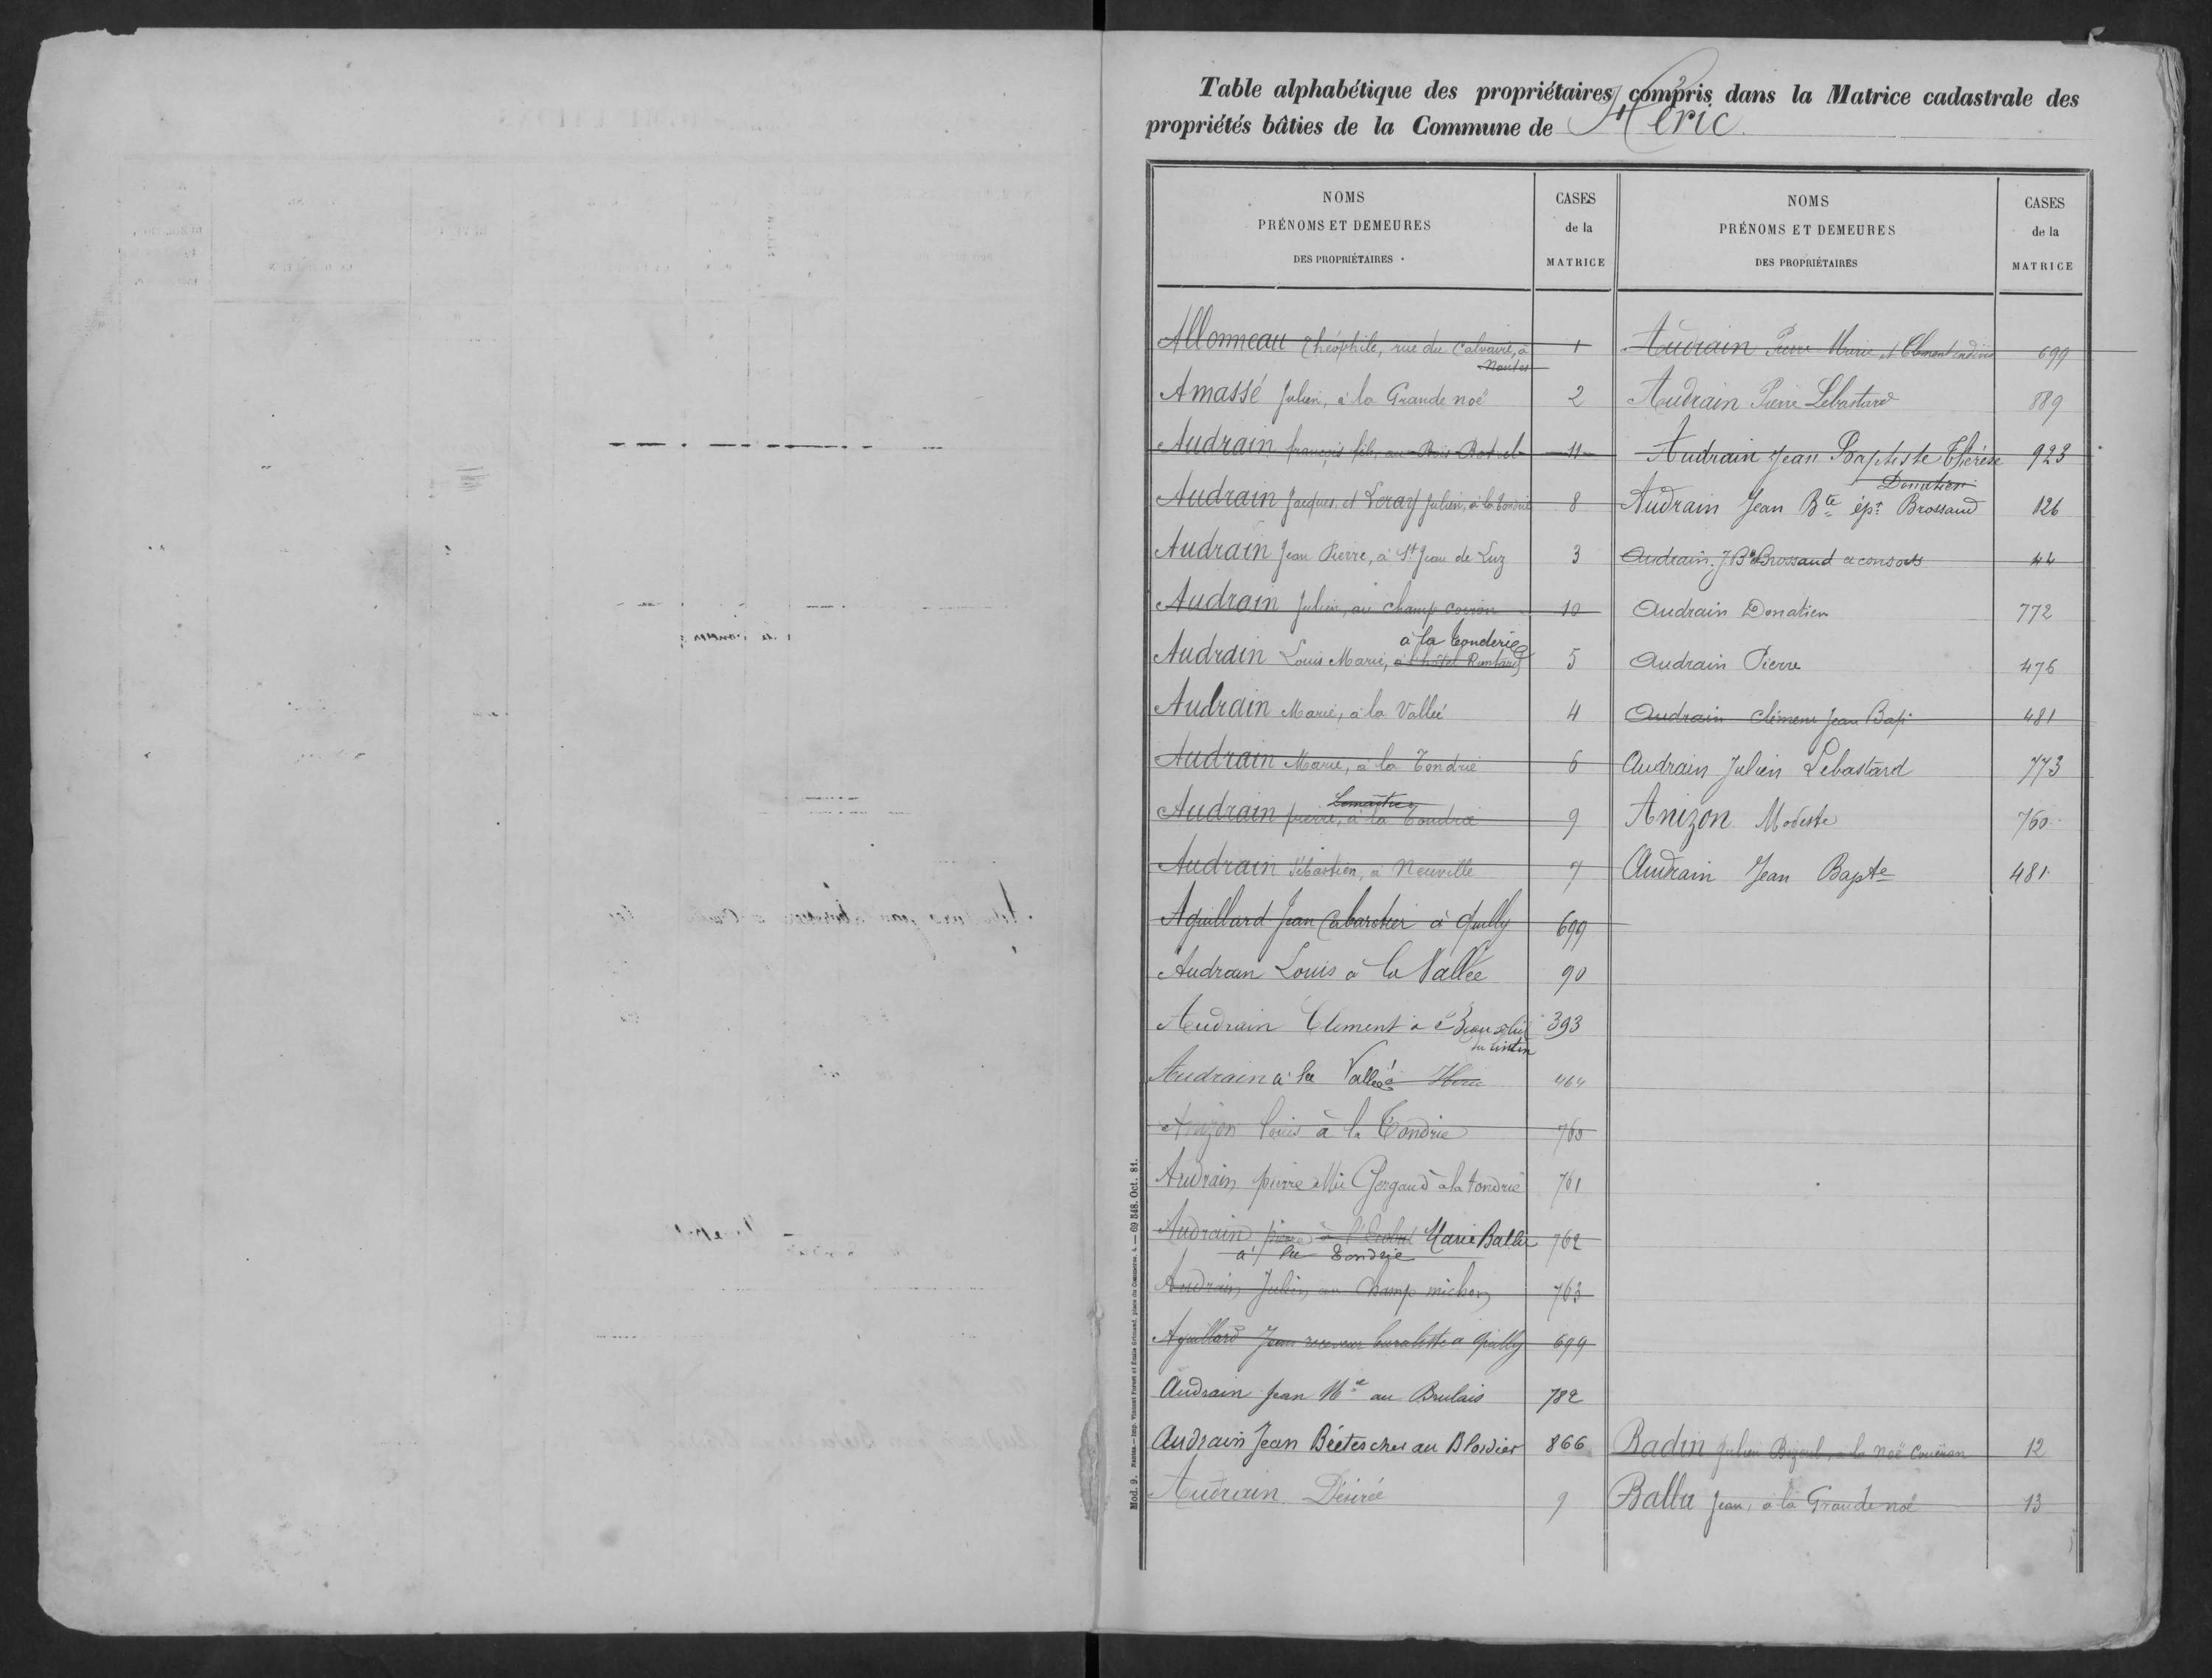 Table alphabétique des propriétaires compris dans la Matrice cadastrale des
propriétés bâties de la Commune de Héric
NOMS
PRÉNOMS ET DEMEURES
DES PROPRIÉTAIRES
CASES
de la
MATRICE
Allonneau Théophile, rue du Calvaire, à 1
Nantes
Amassé Julien, à la Grande noë 2
Audrain françois fils, au Bois 11
Audrain Jacques et Leray Julien, à la 8
Audrain Jean Pierre, à St Jean de Luz 3
Audrain Julien, au champ 10
à la Tonderie
Audrain Louis Marie, à l'hôtel 5
Audrain Marie, à la Vallée 4
Audrain Marie, à la Tondrie 6
Lemaître
Audrain pierre, à la Tondrie 9
Audrain Sébastien, à Neuville 7
Aguillard Jean Cabaretier à Quilly 699
Audrain Louis à la Vallée 90
Audrain Clément à 393
Audrain à la Vallée Héric 464
Anizon Louis à la Tondrie 760
Audrain pierre Mie Gergaud à la tondrie 761
Audrain pierre Marie Ballu 762
à la Tondrie
Audrain Julien au Champ michon 763
Aguillard Jean receveur buraliste à Quilly 699
Audrain Jean Me au Brulais 782
Audrain Jean Bte au Blordier 866
Audrain Désirée 9
NOMS
PRÉNOMS ET DEMEURES
DES PROPRIÉTAIRES
CASES
de la
MATRICE
Audrain Pierre Marie et Clément indivis 699
Audrain Pierre Lebastard 889
Audrain Jean Baptiste Thérèse 923
Donatien
Audrain Jean Bte épx Brossaud 126
Audrain J. Bte Brossaud et consorts 44
Audrain Donatien 772
Audrain Pierre 476
Audrain Clément Jean Bap. 481
Audrain Julien Lebastard 773
Anizon Modeste 760
Audrain Jean Bapte 481
Badin Julien à la noë Couëron 12
Ballu Jean, à la Grande noë 13
Mod. 9. Nantes — Imp. Vincent Forest et Émile Grimaud, place du Commerce, 4. — 69 548. Oct. 81.